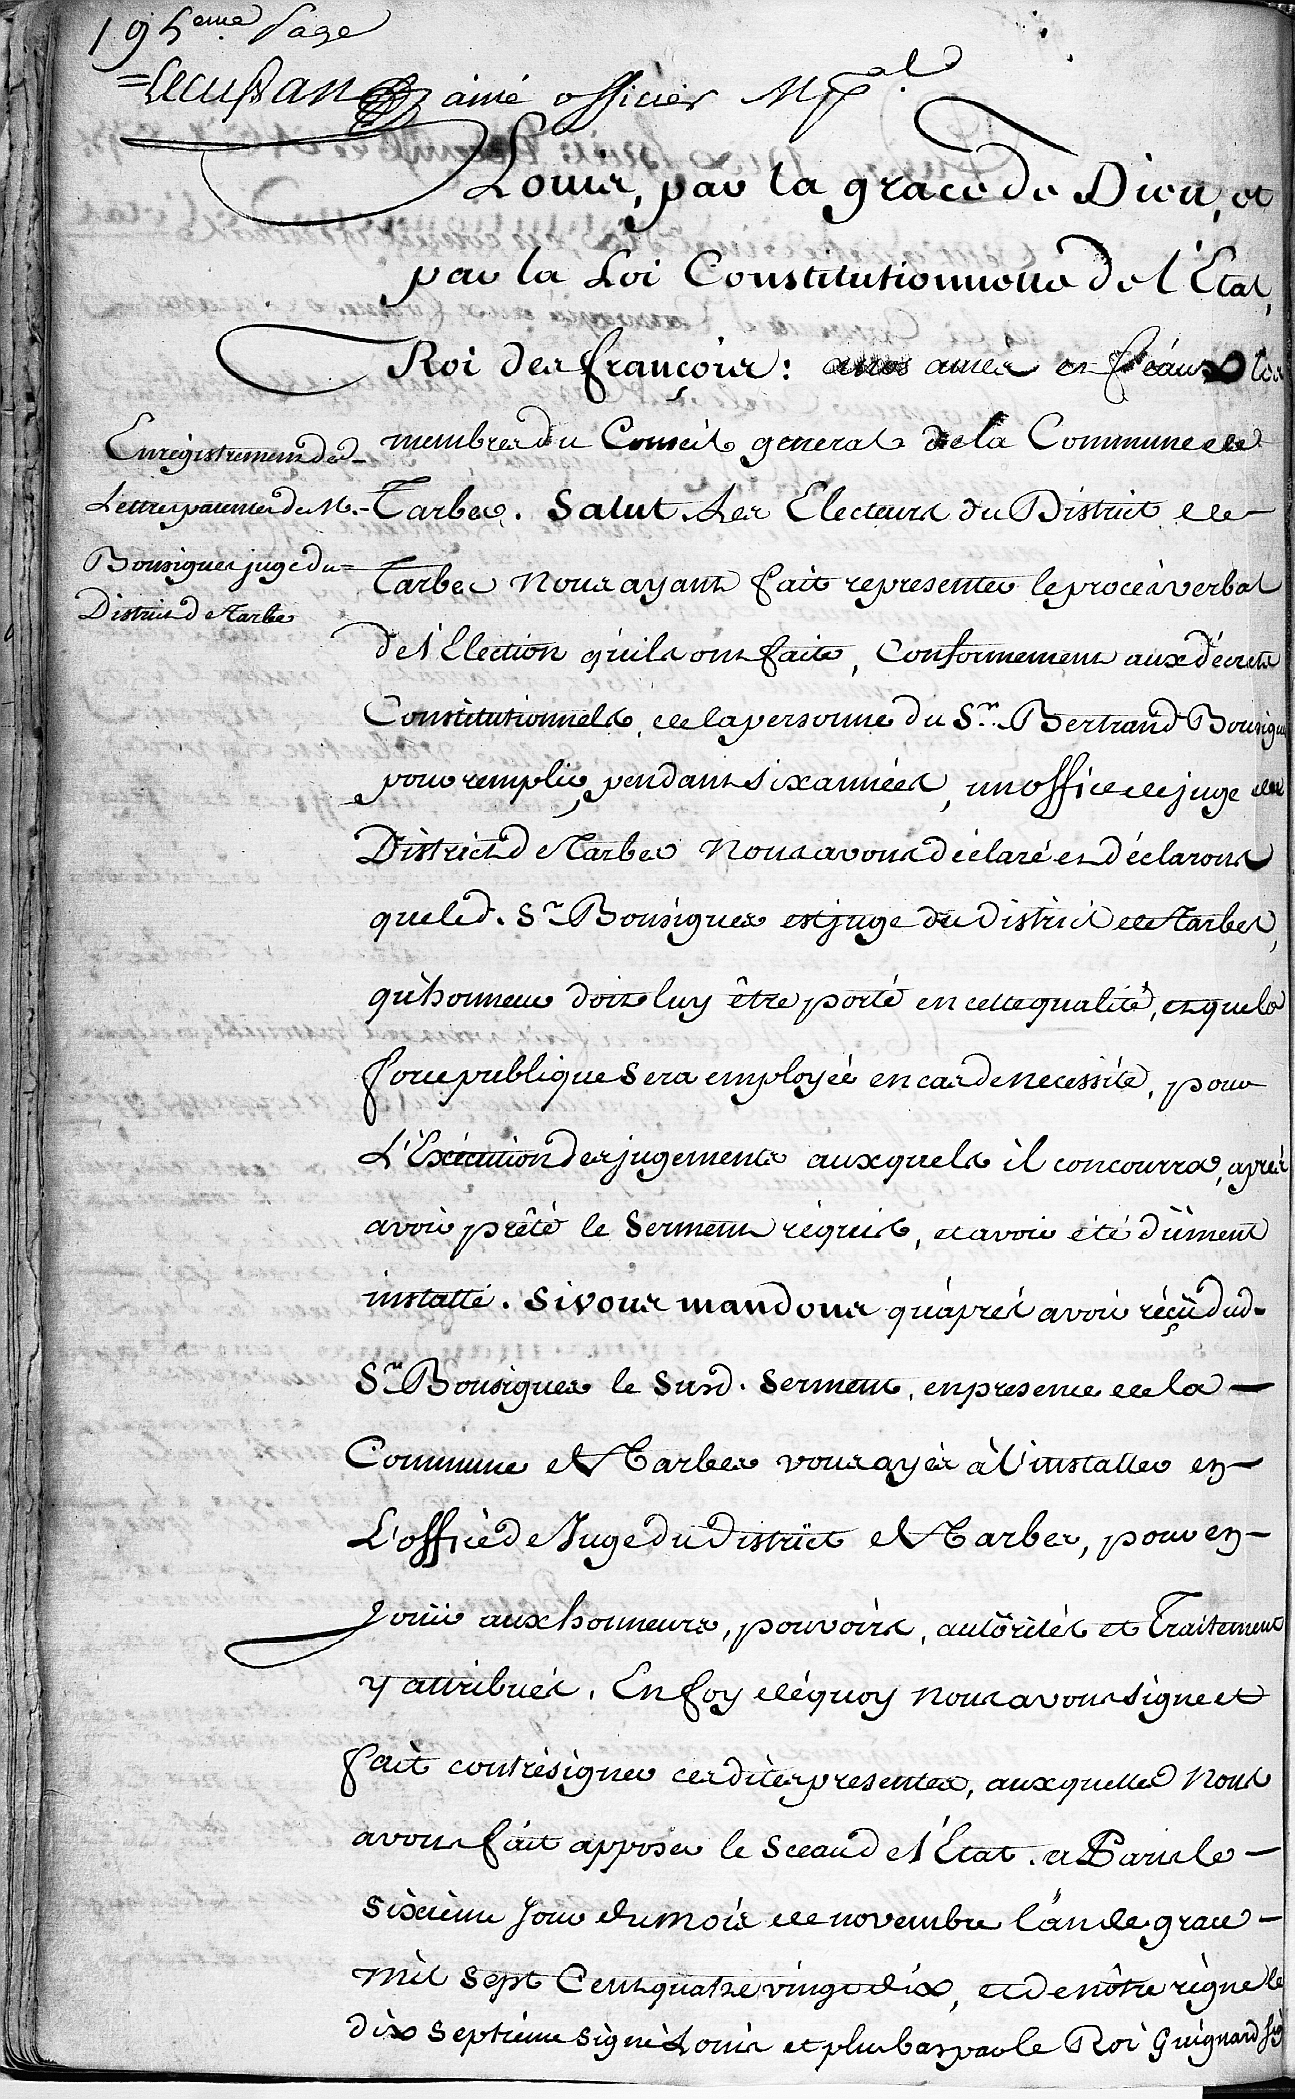 195eme Page
=Lecussan ainé officier Mpal
Louis, par la grace de Dieu, et
par la Loi Constitutionnelle de l'Etat,
Roi des françois: a nos amés et féaux les
Enregistrement des
Lettres patentes de M.
Bousigues juge du
District de Tarbe
membres du Conseil general de la Commune de
Tarbes. Salut. Les Electeurs du District de
Tarbes Nous ayant fait representer le procés verbal
de l'Election qu'ils ont faite, Conformement aux décrets
Constitutionnels, de la personne du Sr. Bertrand Bousigues
pour remplir, pendant six années, un office de juge du
District de Tarbes Nous avons déclaré et déclarons
que led. Sr Bousigues est juge du District de Tarbes,
qu'honneur doit luy être porté en cette qualité, et que la
force publique sera employée en cas de necessité, pour
L'Exécution des jugements auxquels il concourra, aprés
avoir prêté le Serment réquis, et avoir été dûment
installé. Si vous mandons qu'aprés avoir réçu dud.
Sr Bousigues le susd. Serment, en presence de la
Commune de Tarbes vous ayés à l'installer en
L'office de Juge du District de Tarbes, pour en
Jouir aux honneurs, pouvoirs, autorités et Traitement
y attribués. En foy déquoy Nous avons signé et
fait contrésigner cesdites presentes, auxquelles Nous
avons fait apposer le Sceau de l'Etat. a Paris le
sixiéme Jour du mois de novembre l'an de grace
mil Sept Cent quatre vingt dix, et de nôtre régne le
dix septiéme signé Louis et plus bas par le Roi Guignard sig